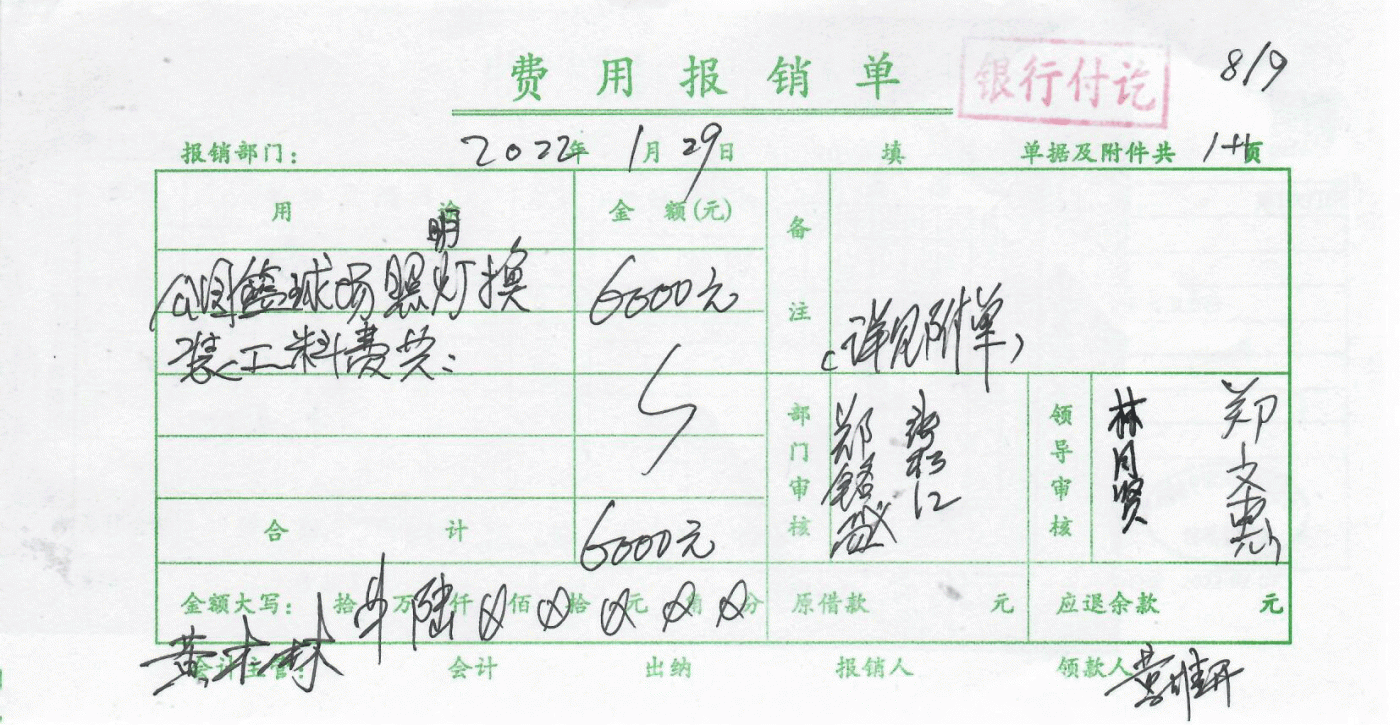 费用报销单
银行付讫
8/9
报销部门： 2022年1月29日 填 单据及附件共 1+ 页
用途 金额(元) 备注
篮球场照明灯换 6000元
装工料费共： (详见附单)
部门审核 郑 领导审核 林月贤 郑文惠
合计 6000元
金额大写： 拾 万陆仟⊗佰⊗拾⊗元⊗角⊗分 原借款 元 应退余款 元
会计主管： 黄木林 会计 出纳 报销人 领款人